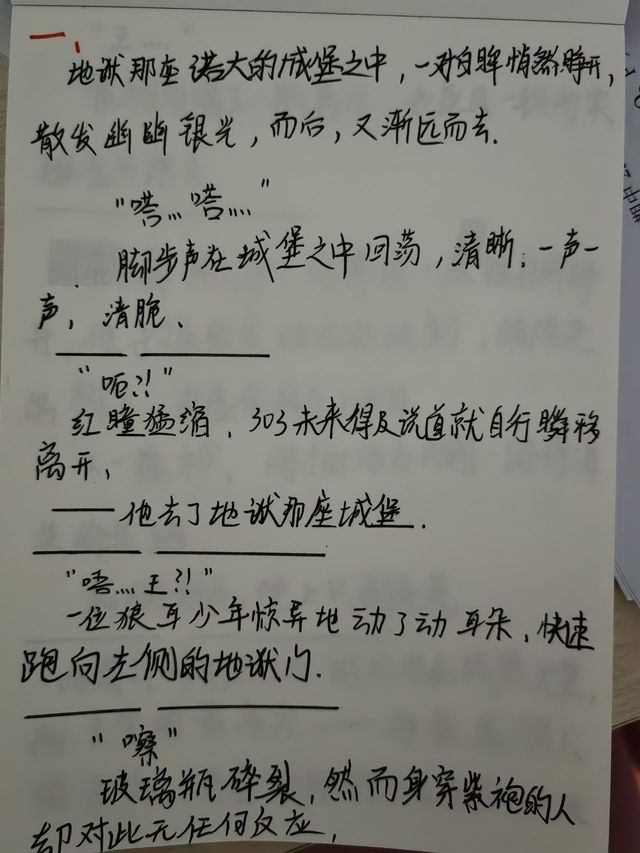 一、
地狱那座诺大的城堡之中，一对白眸悄然睁开，
散发幽幽银光，而后，又渐远而去.
“嗒… 嗒…”
脚步声在城堡之中回荡，清晰、一声一
声，清脆、
“呃?!”
红瞳猛缩、303未来得及说道就自行瞬移
离开，
——他去了地狱那座城堡.
“唔… 王?!”
一位狼耳少年惊异地动了动耳朵，快速
跑向左侧的地狱门.
“嚓”
玻璃瓶碎裂，然而身穿紫袍的人
却对此无任何反应，